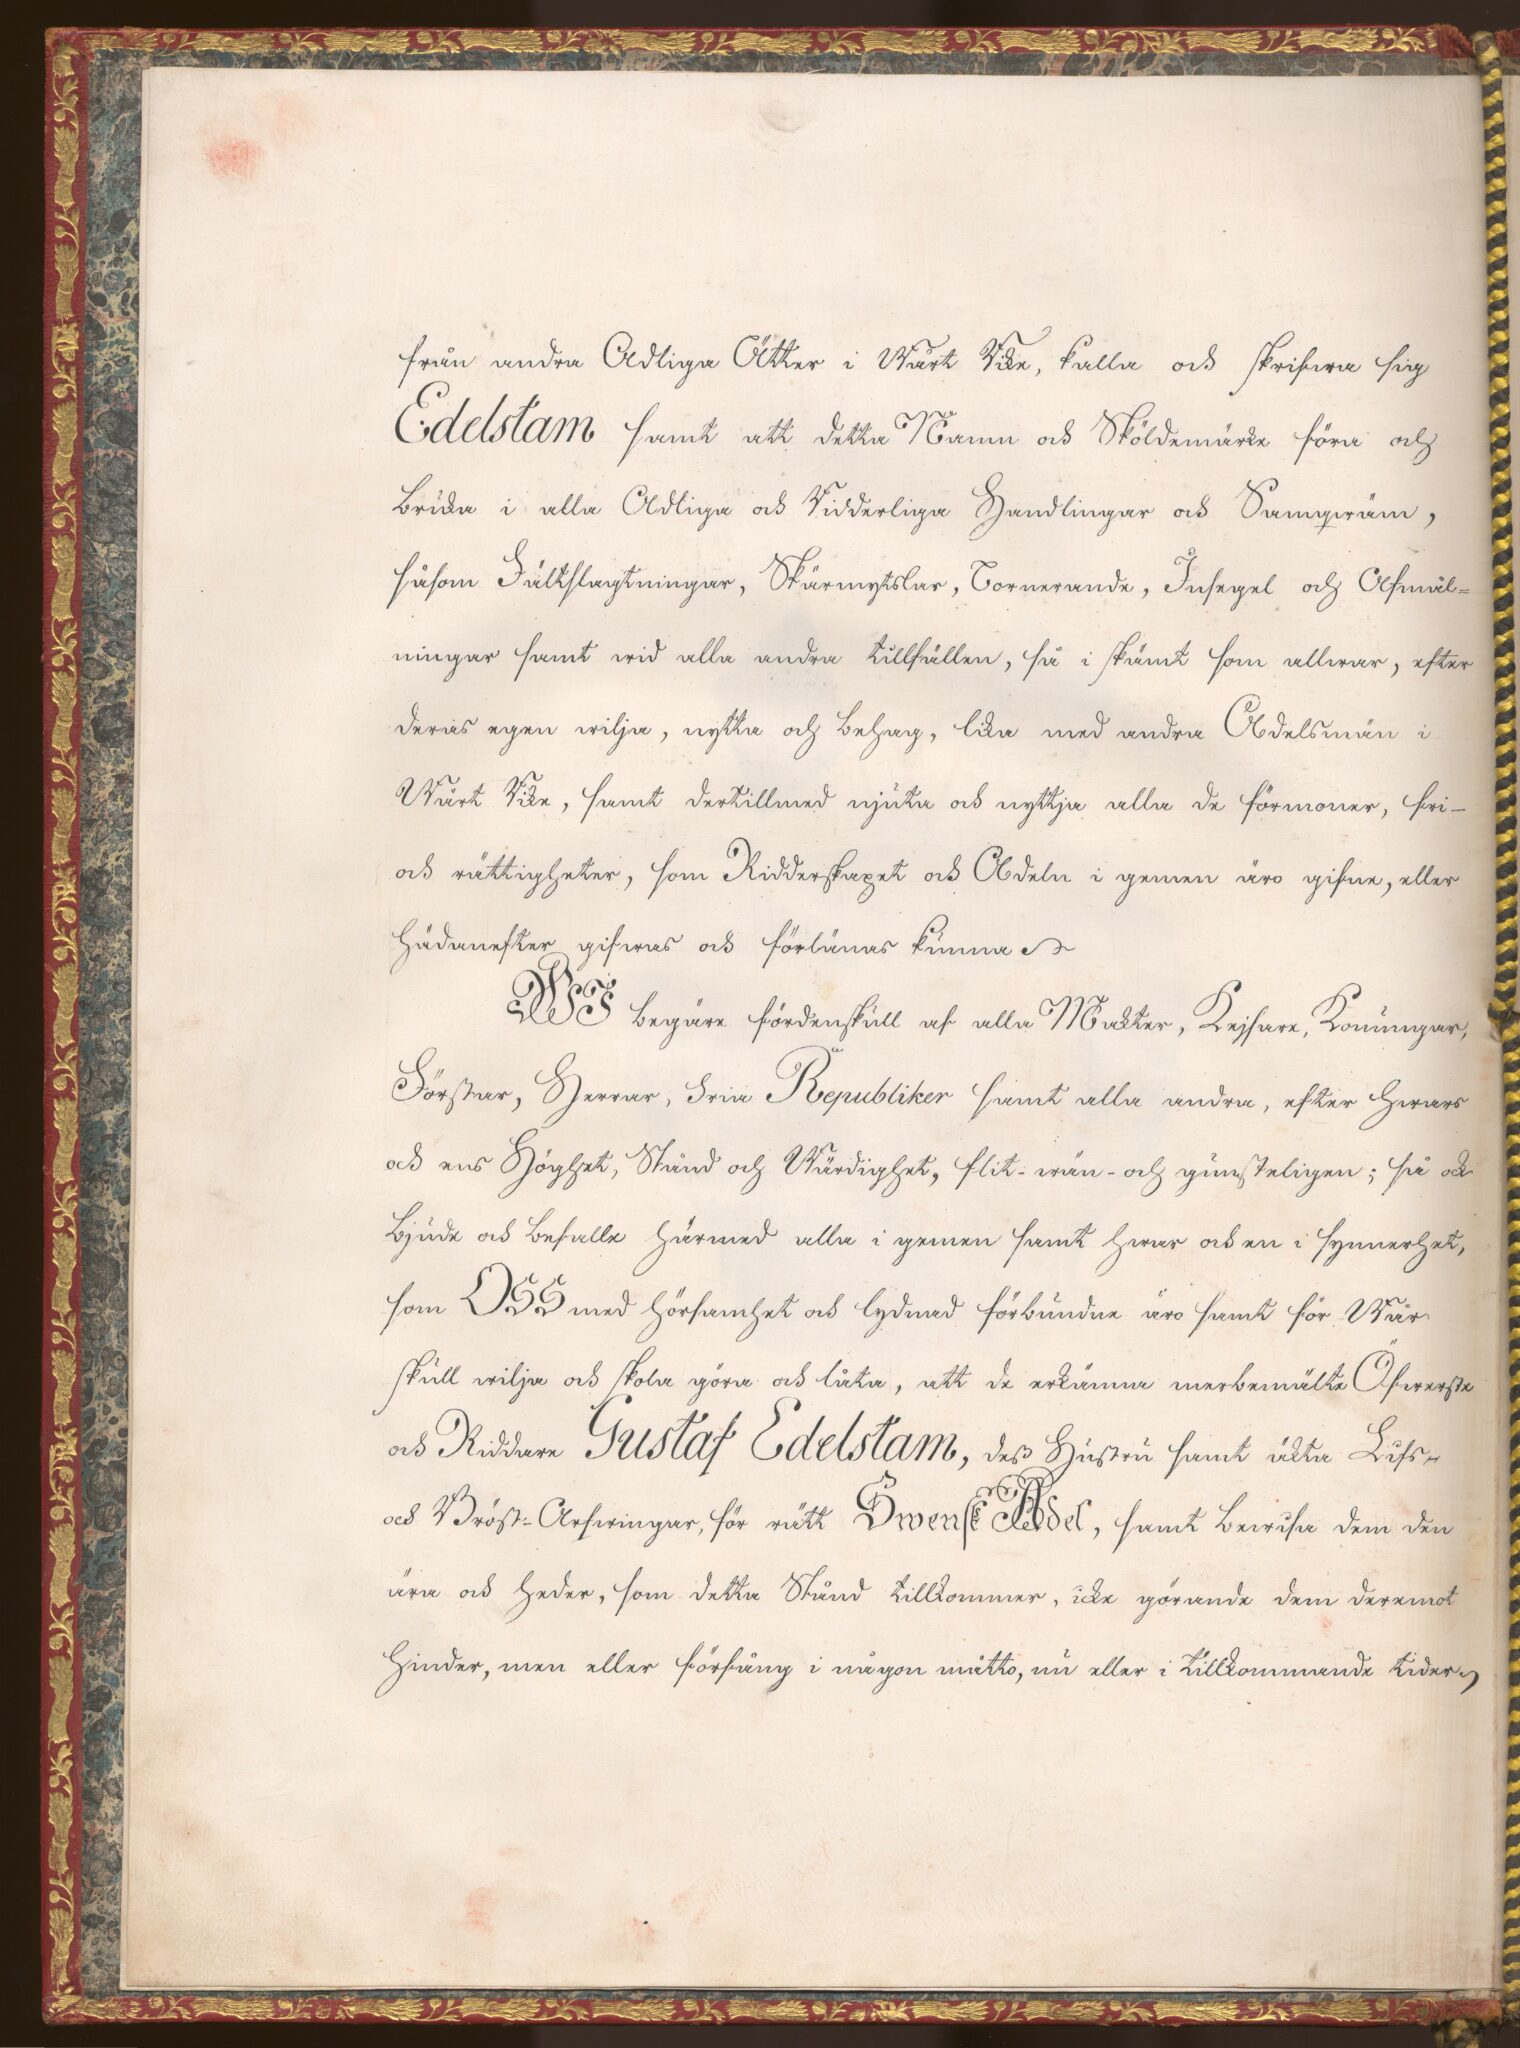 från andra Adliga Ätter i Wårt Rike, kalla och skrifwa sig
Edelstam samt att detta Namn och Sköldemärke föra och
bruka i alla Adliga och Ridderliga Handlingar och Samqwäm,
såsom Fältslagtningar, Skärmytslar, Tornerande, Insegel och Afmål=
ningar samt wid alla andra tillfällen, så i skämt som allwar, efter
deras egen wilja, nytta och behag, lika med andra Adelsmän i
Wårt Rike, samt dertillmed njuta och nyttja alla de förmoner, fri-
och rättigheter, som Ridderskapet och Adeln i gemen äro gifne, eller
hädanefter gifwas och förlänas kunna
WJ begäre fördenskull af alla Makter, Kejsare, Konungar,
Förstar, Herrar, Fria Republiker samt alla andra, efter hwars
och ens Höghet, Stånd och Wärdighet, flit- wän- och gunsteligen; så ock
bjude och befalle härmed alla i gemen samt hwar och en i synnerhet,
som OSS med hörsamhet och lydnad förbundne äro samt för Wår
skull wilja och skola göra och låta, att de erkänna merbemälte Öfwerste
och Riddare Gustaf Edelstam, dess Hustru samt äkta Lifs-
och Bröst-Arfwingar, för rätt Swensk Adel, samt bewisa dem den
ära och heder, som detta Stånd tillkommer, icke görande dem deremot
hinder, men eller förfång i någon måtto, nu eller i tillkommande tider,